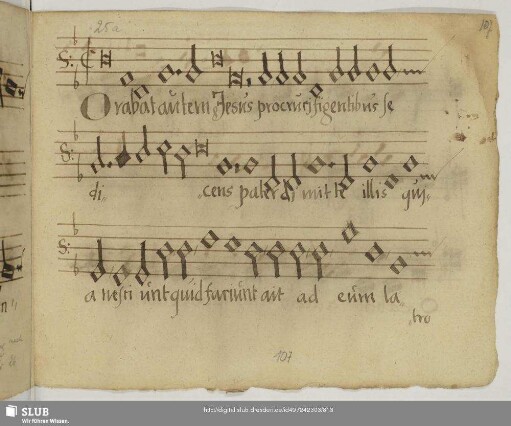 25a
107
Orabat autem Jesus pro crucifigentibus se
di- cens pater di mitte illis qui-
a nesci unt quid faciunt ait ad eum la
tro
107
SLUB
Wir führen Wissen.